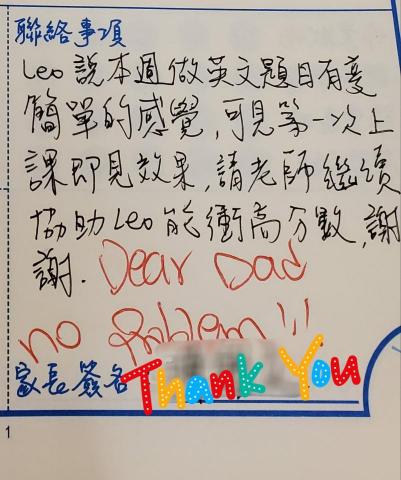 聯絡事項
Leo說本週做英文題目有變
簡單的感覺,可見第一次上
課即見效果,請老師繼續
協助Leo能衝高分數,謝
謝.
Dear Dad
no problem!!
家長簽名
Thank You
1